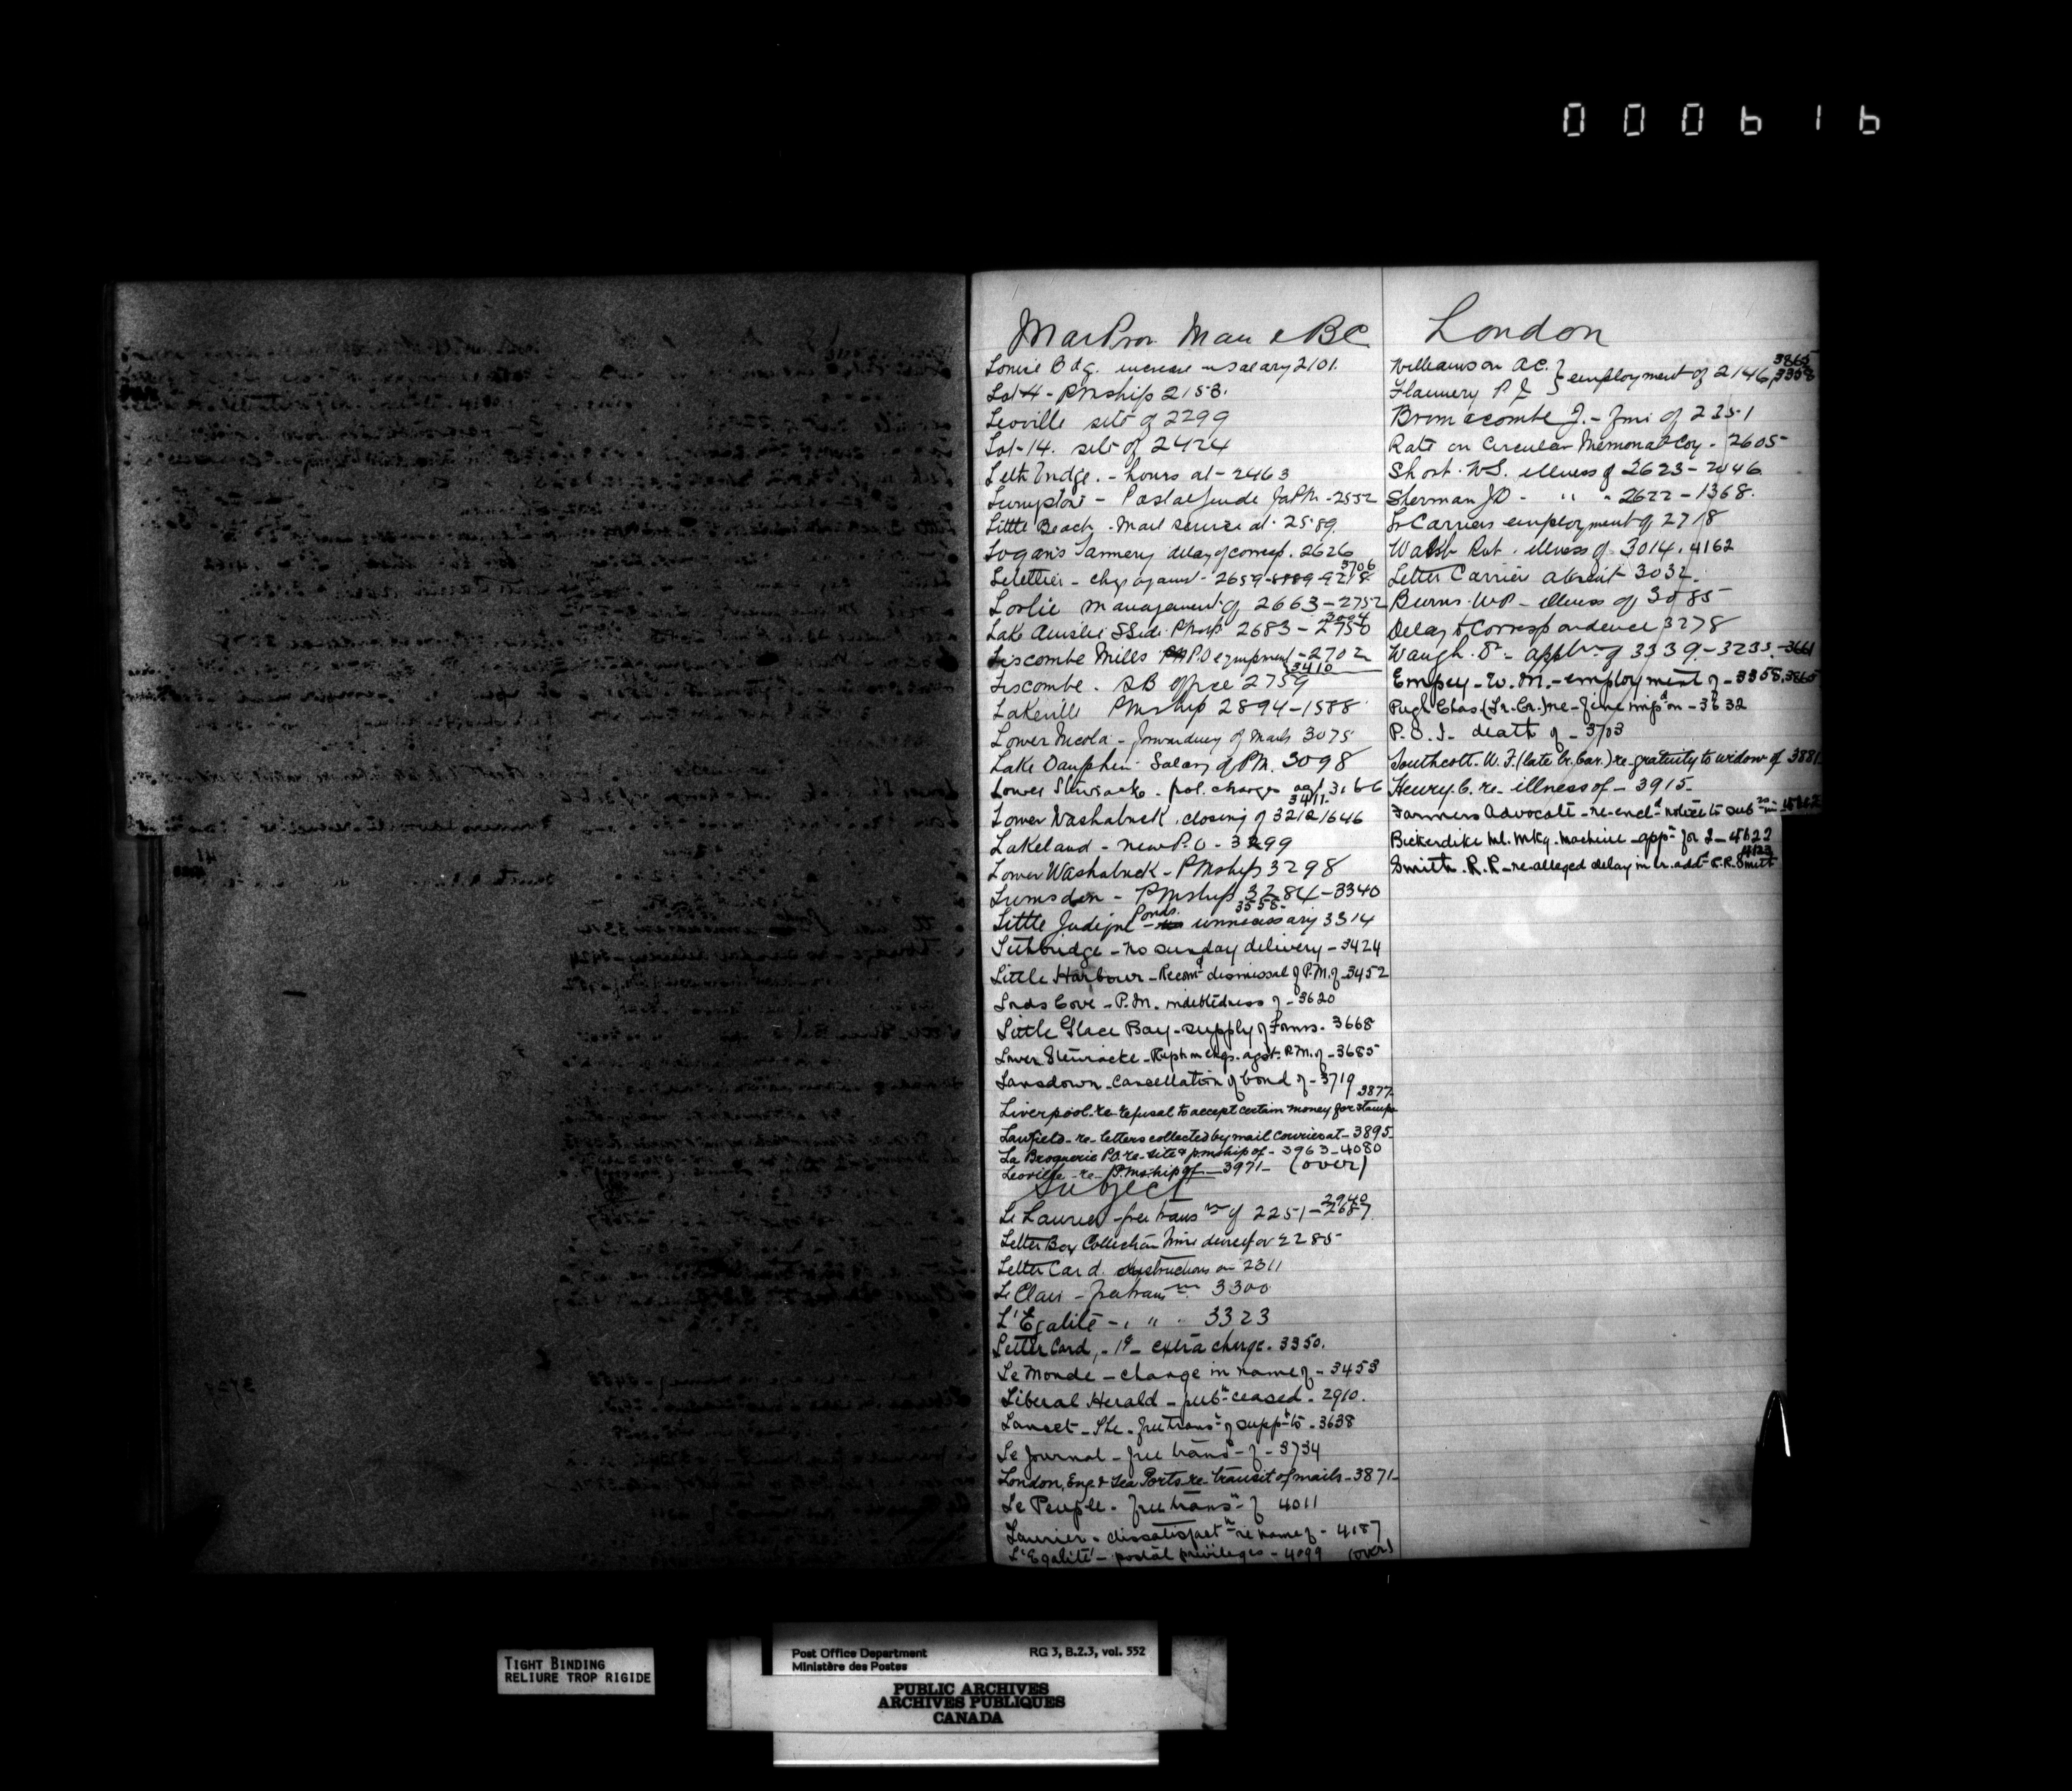 000616
Mar Prov. Man & BC
Louise Bdg. increase in salary 2101.
Lot 4 - PMship 2153.
Leoville site of 2299
Lot-14. site of 2424
Lethbridge. - hours at - 2463
Postal Guide for PM - 2552
Little Beach. Mail service at 2589.
Logan's Tannery delay of corresp. 2626
Letettier - chgs against - 2659 - 8889 - 9218 3706
Leslie management of 2663 - 2752
Lake Ainslie S Side PMship 2683 - 2750 3004
Liscombe Mills P.O equipment - 2702
3410
Liscombe. SB office 2759
Lakeville PMship 2894 - 1588
Lower Nicola - forwarding of mails 3075
Lake Dauphin - Salary of PM. 3098
Lower Stewiacke - pol. charges agst 3166
3411
Lower Washabuck. closing of 3212 1646
Lakeland - new P.O - 3299
Lower Washabuck - PMship 3298
Lumsden - PMship 3284 - 3340
Little Judique Ponds. - unnecessary 3314 3358
Lethbridge - no sunday delivery - 3424
Little Harbour - Recomd dismissal of P.M. of - 3452
Lords Cove - P.M. indebtedness of - 3620
Little Glace Bay - supply of Forms - 3668
Lower Stewiacke - Rept on chgs. agst. P.M. of - 3685
Lansdown - Cancellation of bond of - 3719
3877
Liverpool - re refusal to accept certain money for stamps
Lanfield - re letters collected by mail Courier at - 3895
La Broquerie P.O. re site & pmship of - 3963 - 4080
Leoville - re - P.M.ship of - 3971 - (over)
Subject
Le Laurier - free transn of 2251 - 2687 2940
Letter Box Collection 2285
Letter Card. Instructions on 2311
Le Clair - free transn 3300
L'Egalité - " " 3323
Letter Card, - 1¢ - extra charge. 3350.
Le Monde - change in name of - 3453
Liberal Herald - pubn ceased - 2910.
Lancet - The - free transn of suppt to - 3638
Le Journal - free transn of - 3734
London, Eng & Sea Ports - re - transit of mails - 3871
Le Peuple - free transn of 4011
Laurier - dissatisfactn re name of - 4187
L'Egalité - postal privileges - 4099 (over)
London
Williamson A.C. } employment of 2146, 3358 3865
Flannery P J }
Broomecombe J. - fine of 2251
Rate on Circular Memorial Coy - 2605
Short. W.S. illness of 2623 - 2046
Sherman JD - " " - 2622 - 1368.
Lr Carriers employment of 2718
Walsh Rbt. illness of - 3014. 4162
Letter Carrier absent 3032.
Burns. W.P. - illness of 3085
Delay to Correspondence 3278
Waugh. D - appln of 3339. - 3233. - 3661
Empey - W. M. - employment of - 3358. 3865
Pugh Chas (Lr. Cr.) re - fine impd on - 3632
P. O. I - death of - 3703
Southcott. W. F. (late lr. Car.) re - gratuity to widow of 3881
Henry. C. re - illness of - 3915
Farmers Advocate - re - encld notice to subrs in
Bickerdike Ml. Mkg. Machine - appn for 2 - 4622
4123
Smith. R. R - re - alleged delay in lr. addd R. R. Smith
TIGHT BINDING
RELIURE TROP RIGIDE
Post Office Department RG 3, B.2.3, vol. 552
Ministère des Postes
PUBLIC ARCHIVES
ARCHIVES PUBLIQUES
CANADA